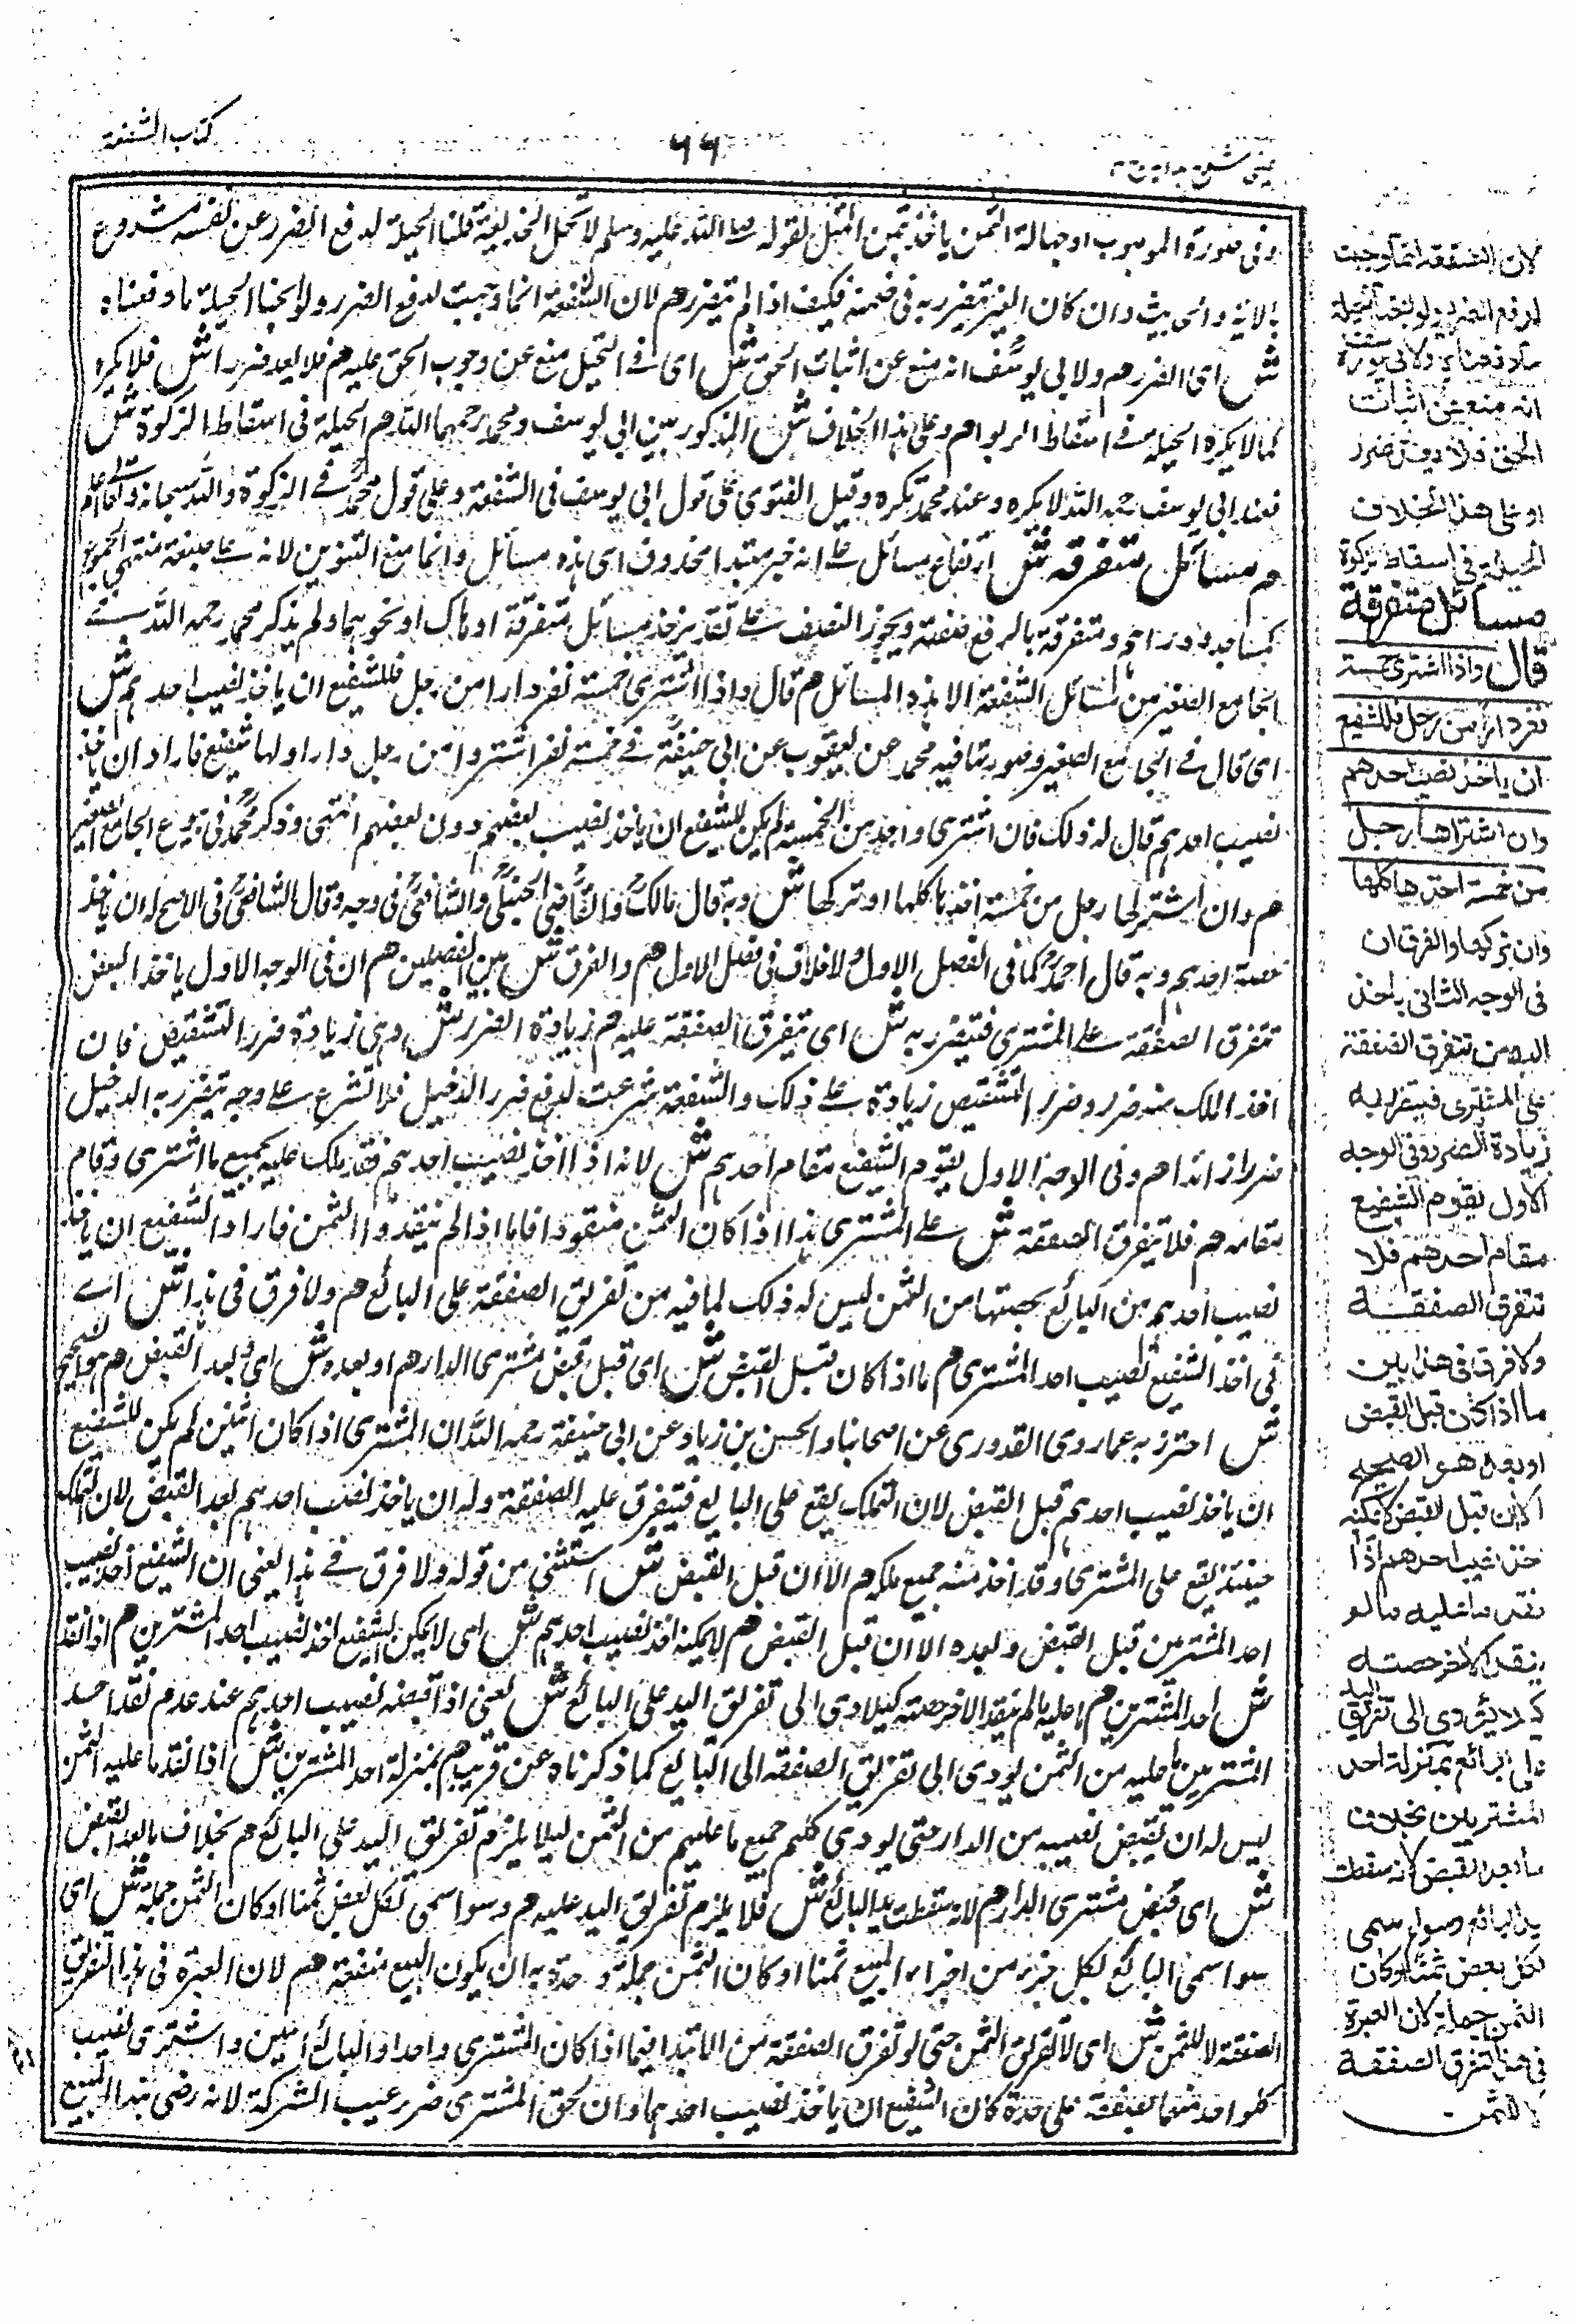 كتاب الشفعة
٦٦
عينى شرح هداية ج ٣
وفى صورة الموهوب او جهالة الثمن ياخذ بثمن المثل لقوله صلى الله عليه وسلم لا تحل الخديعة قلنا الحيلة لدفع الضرر عن نفسه مشروع
وان كان الغير يتضرر به فى ضمنه فكيف اذا لم يتضرر هم لان الشفعة انما وجبت لدفع الضرر ولو ابحنا الحيلة ما دفعناه
ش اى الضرر هم ولابى يوسف انه منع عن اثبات الحق ش اى فى التحيل منع عن وجوب الحق عليه هم فلا يعد ضررا ش فلا يكره
كما لا يكره الحيلة فى اسقاط الربوا هم وعلى هذا الخلاف ش المذكور بين ابى يوسف ومحمد رحمهما الله هم الحيلة فى اسقاط الزكوة ش
فعند ابى يوسف رحمه الله لا يكره وعند محمد يكره وقيل الفتوى على قول ابى يوسف فى الشفعة وعلى قول محمد فى الزكوة والله سبحانه وتعالى اعلم
هم مسائل متفرقة ش ارتفاع مسائل على انه خبر مبتدا محذوف اى هذه مسائل وانما منع التنوين لانه على صيغة منتهى الجموع
كمساجد ودراهم ومتفرقة بالرفع صفته ويجوز النصب على تقدير خذ مسائل متفرقة او هاك او نحوهما ولم يذكر محمد رحمه الله فى
الجامع الصغير من مسائل الشفعة الا هذه المسائل هم قال واذا اشترى خمسة نفر دارا من رجل فللشفيع ان ياخذ نصيب احدهم ش
اى قال فى الجامع الصغير وصورتها فيه محمد عن يعقوب عن ابى حنيفة فى خمسة نفر اشتروا من رجل دارا ولها شفيع فاراد ان ياخذ
نصيب احدهم قال له ذلك فان اشترى واحد من الخمسة لم يكن للشفيع ان ياخذ نصيب بعضهم دون بعضهم انتهى وذكر محمد فى بيوع الجامع الصغير
هم وان اشترلها رجل من خمسة اخذها كلها او تركها ش وبه قال مالك والشافعى فى وجه وقال الشافعى فى الاصح له ان ياخذ
حصة احدهم وبه قال احمد كما فى الفصل الاول ولا خلاف فى فصل الاول هم والفرق ش بين الفصلين هم ان فى الوجه الاول ياخذ البعض
تتفرق الصفقة على المشترى فيتضرر به ش اى بتفرق الصفقة عليه هم زيادة الضرر ش وهى زيادة ضرر التنقيص فان
اخذ الملك منه ضرر وضرر التنقيص زيادة على ذلك والشفعة شرعت لدفع ضرر الدخيل فلا تشرع على وجه يتضرر به الدخيل
ضررا زائدا هم وفى الوجه الاول يقوم الشفيع مقام احدهم ش لانه اذا اخذ نصيب احدهم فقد ملك عليه جميع ما اشترى وقام
مقامه هم فلا يتفرق الصفقة ش على المشترى هذا اذا كان الثمن منقودا فاما اذا لم ينقدوا الثمن فاراد الشفيع ان ياخذ
نصيب احدهم من البائع بحصتها من الثمن ليس له ذلك لما فيه من تفريق الصفقة على البائع هم ولا فرق فى هذا ش اى
فى اخذ الشفيع نصيب احد المشترى هم ما اذا كان قبل القبض ش اى قبل قبض مشترى الدار هم او بعده ش اى وبعد القبض هم هو الصحيح
ش احترز به عما روى القدورى عن اصحابنا والحسن بن زياد عن ابى حنيفة رحمه الله ان المشترى اذا كان اثنين لم يكن للشفيع
ان ياخذ نصيب احدهم قبل القبض لان التملك يقع على البائع فيتفرق عليه الصفقة وله ان ياخذ نصيب احدهم بعد القبض لان التملك
حينئذ يقع على المشترى وقد اخذ منه جميع ملكه هم الا ان قبل القبض ش استثنى من قوله ولا فرق فى هذا يعنى ان الشفيع اخذ نصيب
احد المشترين قبل القبض وبعده الا ان قبل القبض هم لا يمكنه اخذ نصيب احدهم ش اى لا يمكن الشفيع اخذ نصيب احد المشترين هم اذا نقد
ش احد المشترين هم ما عليه ما لم ينقد الاخر حصته كيلا يؤدى الى تفريق اليد على البائع ش يعنى اذا قبضه نصيب احدهم عند عدم نقد احد
المشترين ما عليه من الثمن يؤدى الى تفريق الصفقة الى البائع كما ذكرناه عن قريب هم بمنزلة احد المشترين ش اذا نقد ما عليه الثمن
ليس له ان يقبض نصيبه من الدار حتى يودى كلهم جميع ما عليهم من الثمن ليلا يلزم تفريق اليد على البائع هم بخلاف ما بعد القبض
ش اى قبض مشترى الدار هم لانه سقطت يد البائع ش فلا يلزم تفريق اليد عليه هم وسوا سمى لكل بعض ثمنا او كان الثمن جملة ش اى
سوا سمى البائع لكل جزء من اجزاء المبيع ثمنا او كان الثمن جملة واحدة بان يكون البيع صفقة هم لان العبرة فى هذا لتفريق
الصفقة لا للثمن ش اى لا لتفريق الثمن حتى لو تفرق الصفقة من الابتدا فيما اذا كان المشترى واحدا والبائع اثنين واشترى نصيب
كلواحد منهما بصفقة على حدة كان للشفيع ان ياخذ نصيب احدهما وان لحق المشترى ضرر عيب الشركة لانه رضى بهذا العيب
لان الشفعة انما وجبت
لدفع الضرر ولو ابحنا الحيلة
ما دفعناه ولابى يوسف
انه منع عن اثبات
الحق فلا يعد ضررا
وعلى هذا الخلاف
الحيلة فى اسقاط الزكوة
مسائل متفرقة
قال واذا اشترى خمسة
نفر دارا من رجل فللشفيع
ان ياخذ نصيب احدهم
وان اشتراها رجل
من خمسة اخذها كلها
وان تركها والفرق ان
فى الوجه الثانى ياخذ
البعض تتفرق الصفقة
على المشترى فيتضرر به
زيادة الضرر وفى الوجه
الاول يقوم الشفيع
مقام احدهم فلا
تتفرق الصفقة
ولا فرق فى هذا بين
ما اذا كان قبل القبض
او بعده هو الصحيح
الا ان قبل القبض لا يمكنه
اخذ نصيب احدهم اذا
نقد ما عليه ما لم
ينقد الاخر حصته
كيلا يؤدى الى تفريق اليد
على البائع بمنزلة احد
المشتريين بخلاف
ما بعد القبض لانه سقطت
يد البائع وسواء سمى
لكل بعض ثمنا او كان
الثمن جملة لان العبرة
فى هذا لتفرق الصفقة
لا للثمن